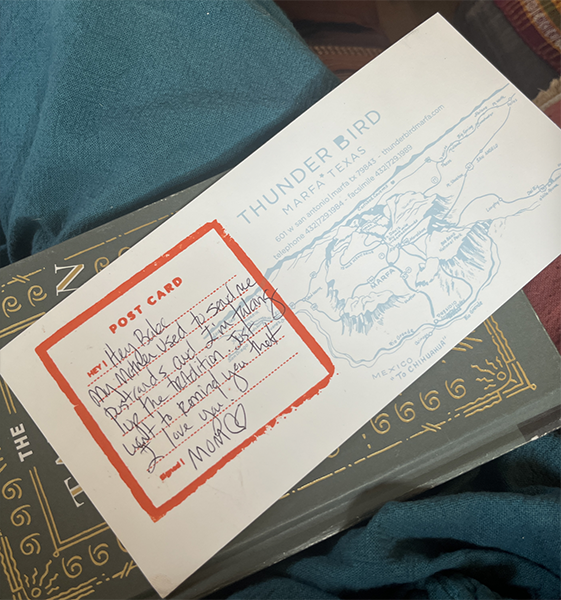 THUNDER BIRD
MARFA TEXAS
601 w san antonio | marfa tx 79843 - thunderbirdmarfa.com
telephone 432|729.1984 - facsimile 432|729.1989
MARFA
MEXICO
"TO CHIHUAHUA"
POST CARD
HEY! Hey Babe
My Mother used to send me
postcards and I'm taking
up the tradition just
want to remind you that
I love you!
Signed! Mom
THE